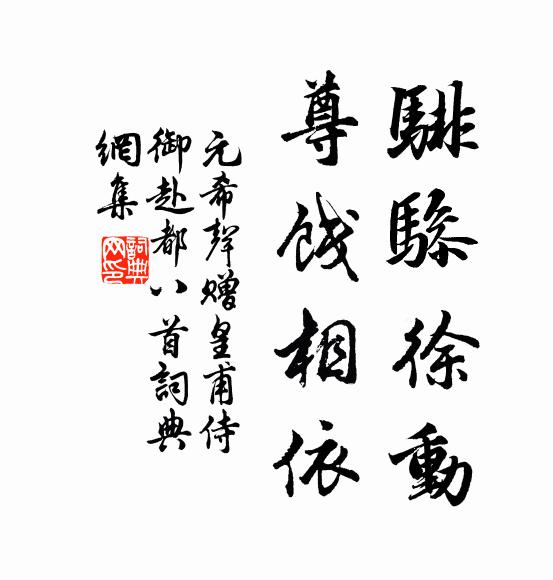 騑驂徐動
尊餞相依
元希聲贈皇甫侍
御赴都八首詞典
網集
詞典
网印